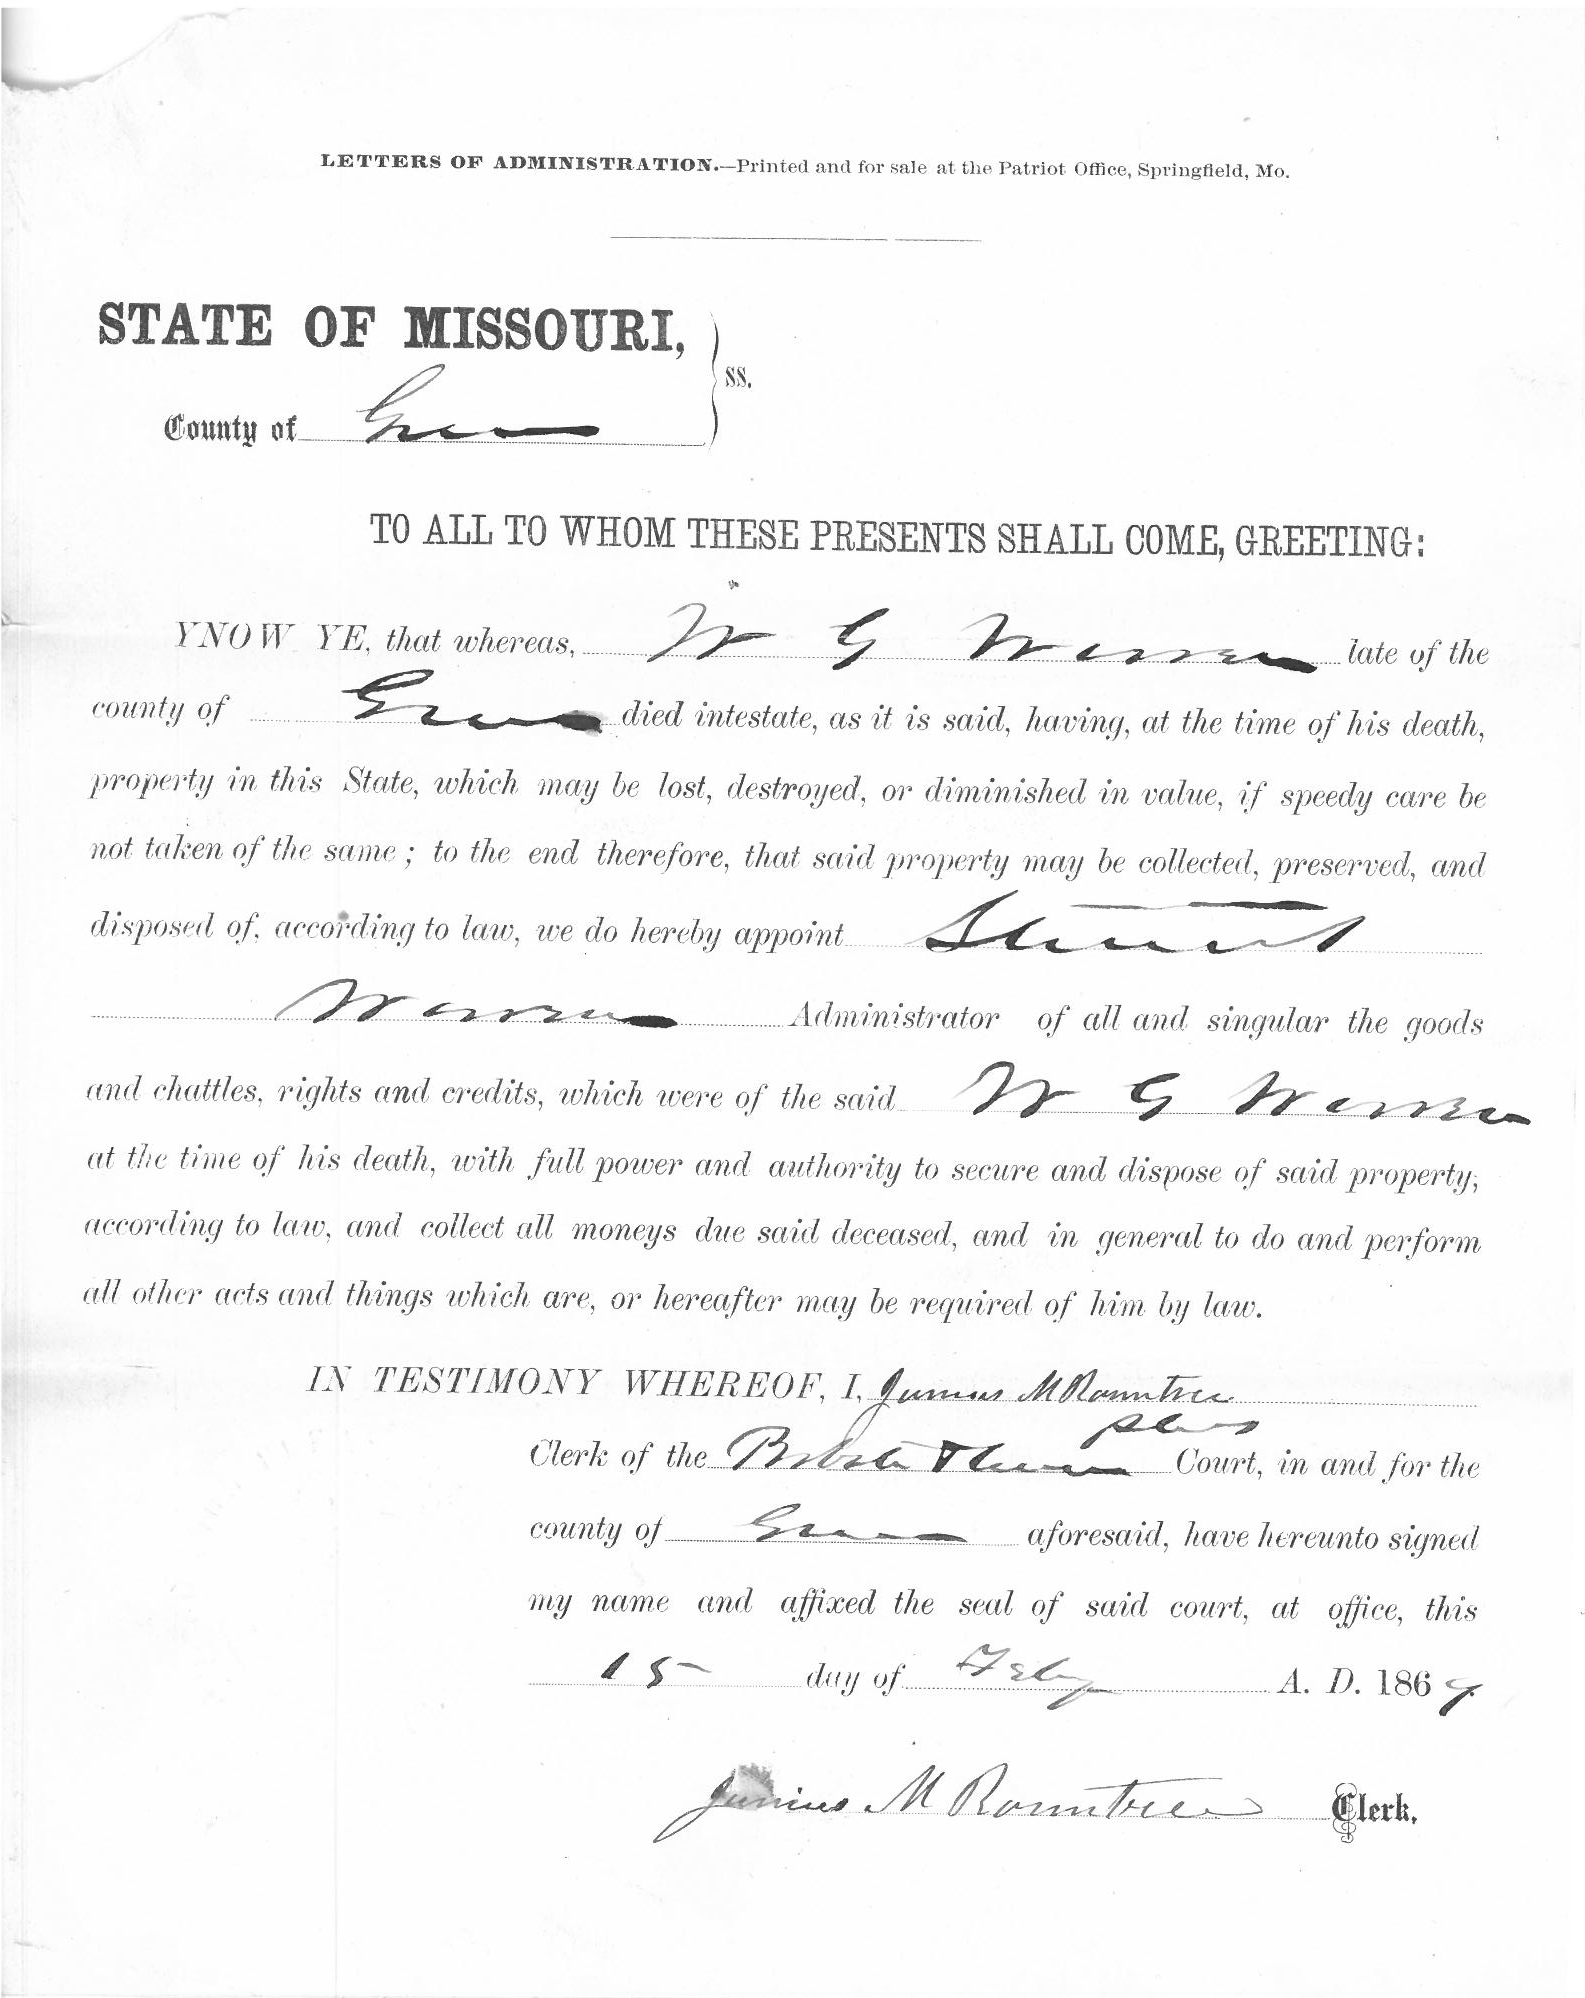 LETTERS OF ADMINISTRATION.—Printed and for sale at the Patriot Office, Springfield, Mo.
STATE OF MISSOURI,
ss.
County of Greene
TO ALL TO WHOM THESE PRESENTS SHALL COME, GREETING:
YNOW YE, that whereas, W G Warren late of the
county of Greene died intestate, as it is said, having, at the time of his death,
property in this State, which may be lost, destroyed, or diminished in value, if speedy care be
not taken of the same; to the end therefore, that said property may be collected, preserved, and
disposed of, according to law, we do hereby appoint Stuart
Warren Administrator of all and singular the goods
and chattles, rights and credits, which were of the said W G Warren
at the time of his death, with full power and authority to secure and dispose of said property,
according to law, and collect all moneys due said deceased, and in general to do and perform
all other acts and things which are, or hereafter may be required of him by law.
IN TESTIMONY WHEREOF, I, Junius M Rountree
Clerk of the Probate Court, in and for the
county of Greene aforesaid, have hereunto signed
my name and affixed the seal of said court, at office, this
15 day of Feby A. D. 186
Junius M Rountree Clerk.